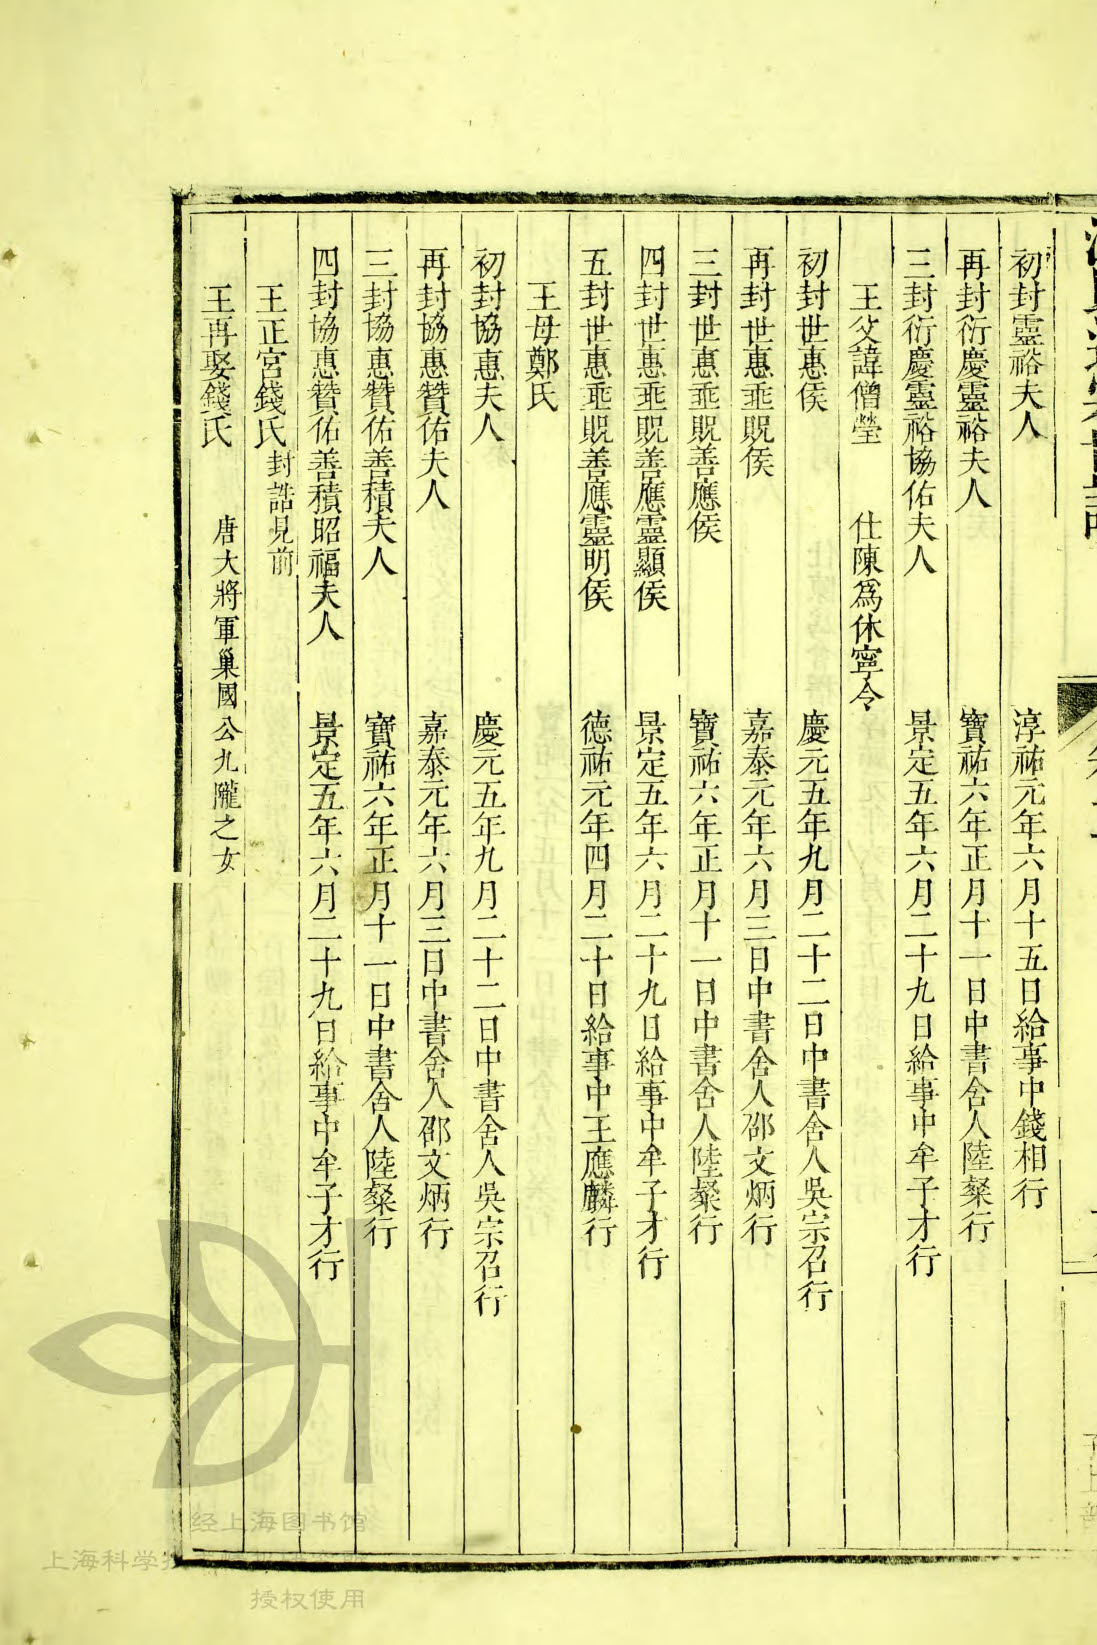 初封靈裕夫人 淳祐元年六月十五日給事中錢相行
再封衍慶靈裕夫人 寶祐六年正月十一日中書舍人陸粲行
三封衍慶靈裕協佑夫人 景定五年六月二十九日給事中牟子才行
王父諱僧瑩 仕陳爲休寧令
初封世惠侯 慶元五年九月二十二日中書舍人吳宗召行
再封世惠垂貺侯 嘉泰元年六月三日中書舍人邵文炳行
三封世惠垂貺善應侯 寶祐六年正月十一日中書舍人陸粲行
四封世惠垂貺善應靈顯侯 景定五年六月二十九日給事中牟子才行
五封世惠垂貺善應靈明侯 德祐元年四月二十日給事中王應麟行
王母鄭氏
初封協惠夫人 慶元五年九月二十二日中書舍人吳宗召行
再封協惠贊佑夫人 嘉泰元年六月三日中書舍人邵文炳行
三封協惠贊佑善積夫人 寶祐六年正月十一日中書舍人陸粲行
四封協惠贊佑善積昭福夫人 景定五年六月二十九日給事中牟子才行
王正宮錢氏 封誥見前
王再娶錢氏 唐大將軍巢國公九隴之女
经上海图书馆
上海科学技
授权使用